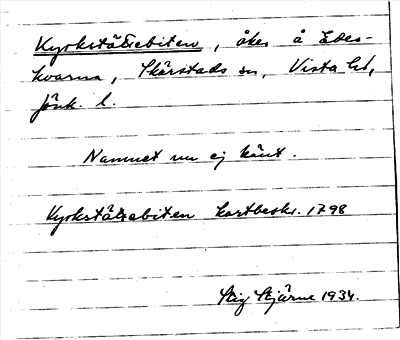 Kyrkstälsebiten, åker å Edes-
kvarna, Skärstads sn, Vista hd,
Jönk. l.
Namnet nu ej känt.
Kyrkstälsabiten kartbeskr. 1798
Stig Stjärne 1934.